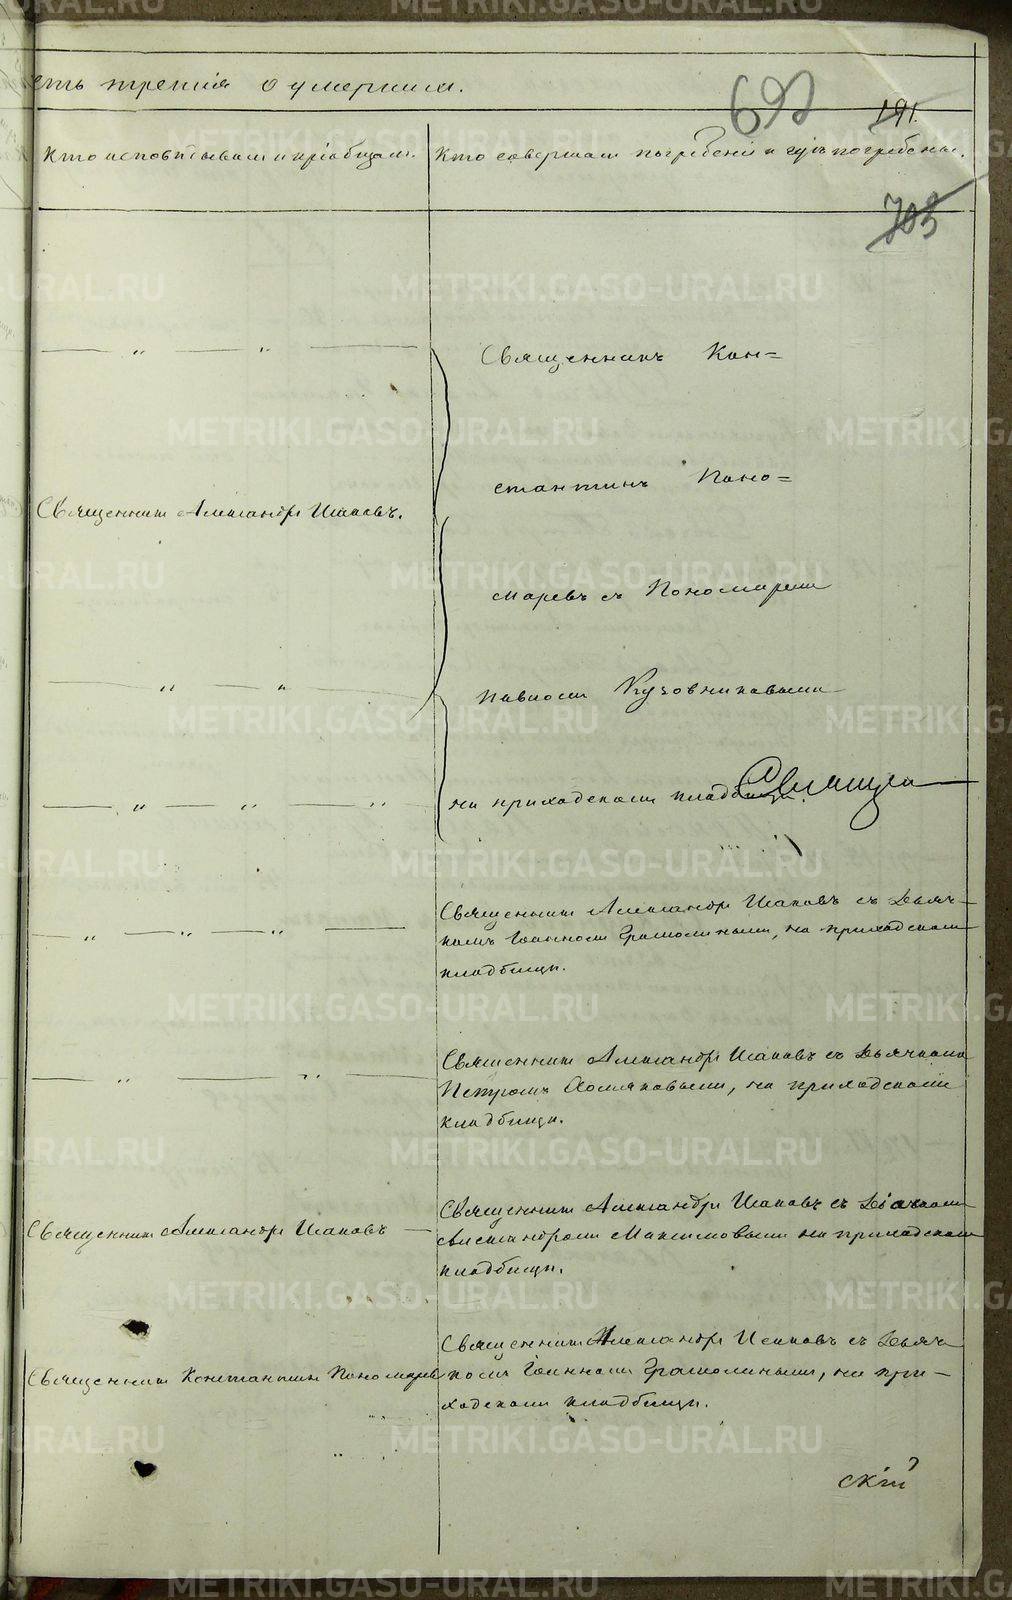 есть третія о умершихъ.
692
191.
Кто исповѣдывалъ и пріобщалъ.
Кто совершалъ погребеніе и гдѣ погребены.
703
Священникъ Кон=
стантинъ Поно=
Священникъ Александръ Исаковъ.
маревъ съ Пономаремъ
Павломъ Кузовниковымъ
на приходскомъ кладбищѣ.
Священникъ Александръ Исаковъ съ Дьяч-
комъ Іоанномъ Грамолинымъ, на приходскомъ
кладбищѣ.
Священникъ Александръ Исаковъ съ Дьячкомъ
Петромъ Хомяковымъ, на приходскомъ
кладбищѣ.
Священникъ Александръ Исаковъ
Священникъ Александръ Исаковъ съ Діачкомъ
Александромъ Максимовымъ на приходскомъ
кладбищѣ.
Священникъ Константинъ Пономаревъ
Священникъ Александръ Исаковъ съ Дьяч
комъ Іоанномъ Грамолинымъ, на при-
ходскомъ кладбищѣ.
скій
METRIKI.GASO-URAL.RU